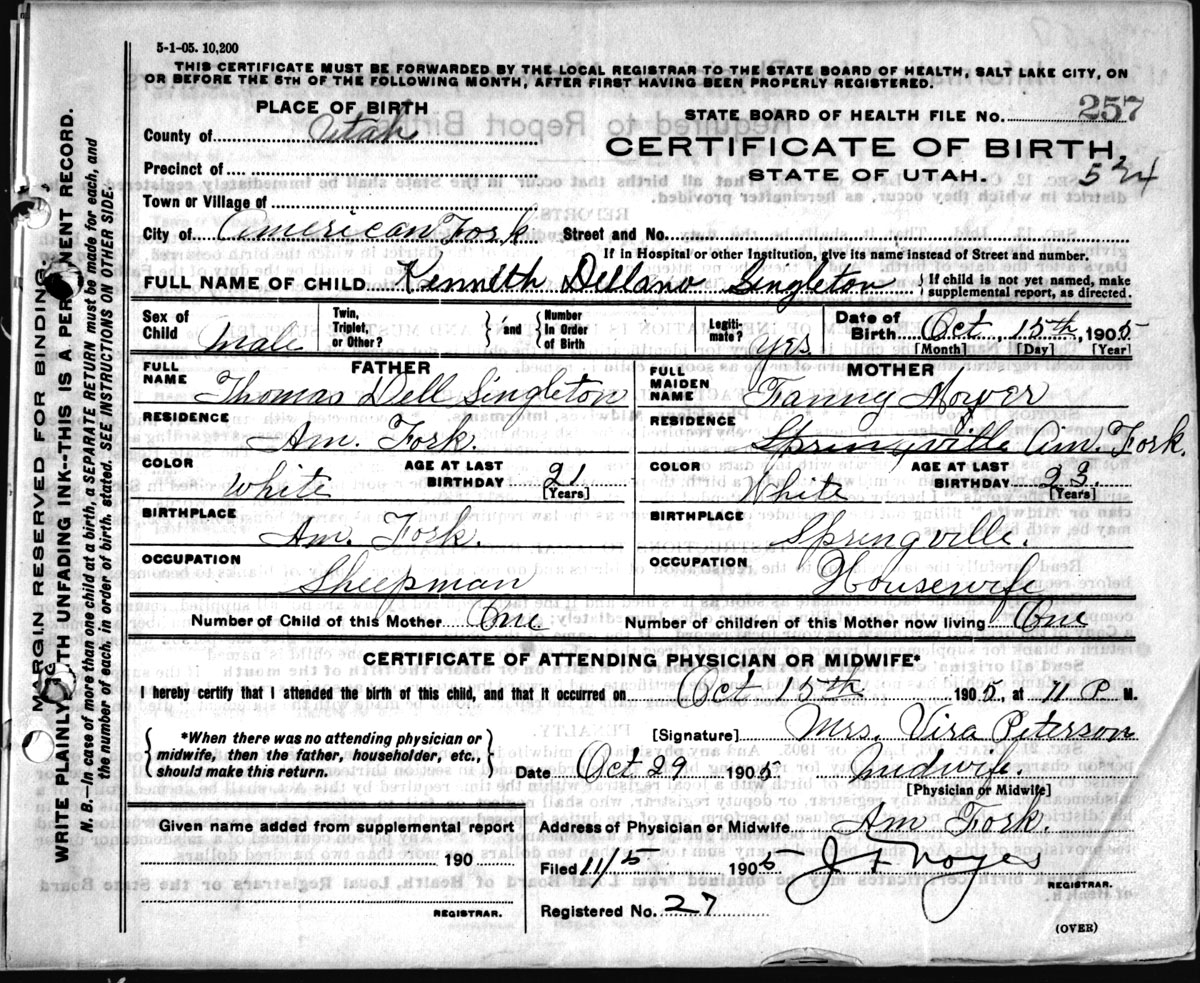 5-1-05. 10,200
THIS CERTIFICATE MUST BE FORWARDED BY THE LOCAL REGISTRAR TO THE STATE BOARD OF HEALTH, SALT LAKE CITY, ON
OR BEFORE THE 5TH OF THE FOLLOWING MONTH, AFTER FIRST HAVING BEEN PROPERLY REGISTERED.
PLACE OF BIRTH
County of Utah
Precinct of
Town or Village of
City of American Fork Street and No.
STATE BOARD OF HEALTH FILE No. 257
CERTIFICATE OF BIRTH
STATE OF UTAH. 524
If in Hospital or other Institution, give its name instead of Street and number.
FULL NAME OF CHILD Kenneth Dellano Singleton { If child is not yet named, make
supplemental report, as directed.
Sex of Child Male
Twin, Triplet, or Other? } and { Number In Order of Birth
Legiti- mate? Yes
Date of Birth Oct. 15th, 1905
[Month] [Day] [Year]
FATHER
FULL NAME Thomas Dell Singleton
RESIDENCE Am. Fork.
COLOR White AGE AT LAST BIRTHDAY 21 [Years]
BIRTHPLACE Am. Fork.
OCCUPATION Sheepman
MOTHER
FULL MAIDEN NAME Fanny Moyer
RESIDENCE Springville Am. Fork.
COLOR White AGE AT LAST BIRTHDAY 23 [Years]
BIRTHPLACE Springville.
OCCUPATION Housewife
Number of Child of this Mother One Number of children of this Mother now living One
CERTIFICATE OF ATTENDING PHYSICIAN OR MIDWIFE*
I hereby certify that I attended the birth of this child, and that it occurred on Oct 15th 1905, at 11 P M.
*When there was no attending physician or
midwife, then the father, householder, etc.,
should make this return.
[Signature] Mrs. Vira Peterson
Date Oct 29 1905 Midwife.
[Physician or Midwife]
Given name added from supplemental report
190
REGISTRAR.
Address of Physician or Midwife Am Fork.
Filed 11/5 1905 J F Noyes
REGISTRAR.
Registered No. 27
(OVER)
MARGIN RESERVED FOR BINDING
WRITE PLAINLY WITH UNFADING INK--THIS IS A PERMANENT RECORD.
N. B.--In case of more than one child at a birth, a SEPARATE RETURN must be made for each, and
the number of each, in order of birth, stated. SEE INSTRUCTIONS ON OTHER SIDE.